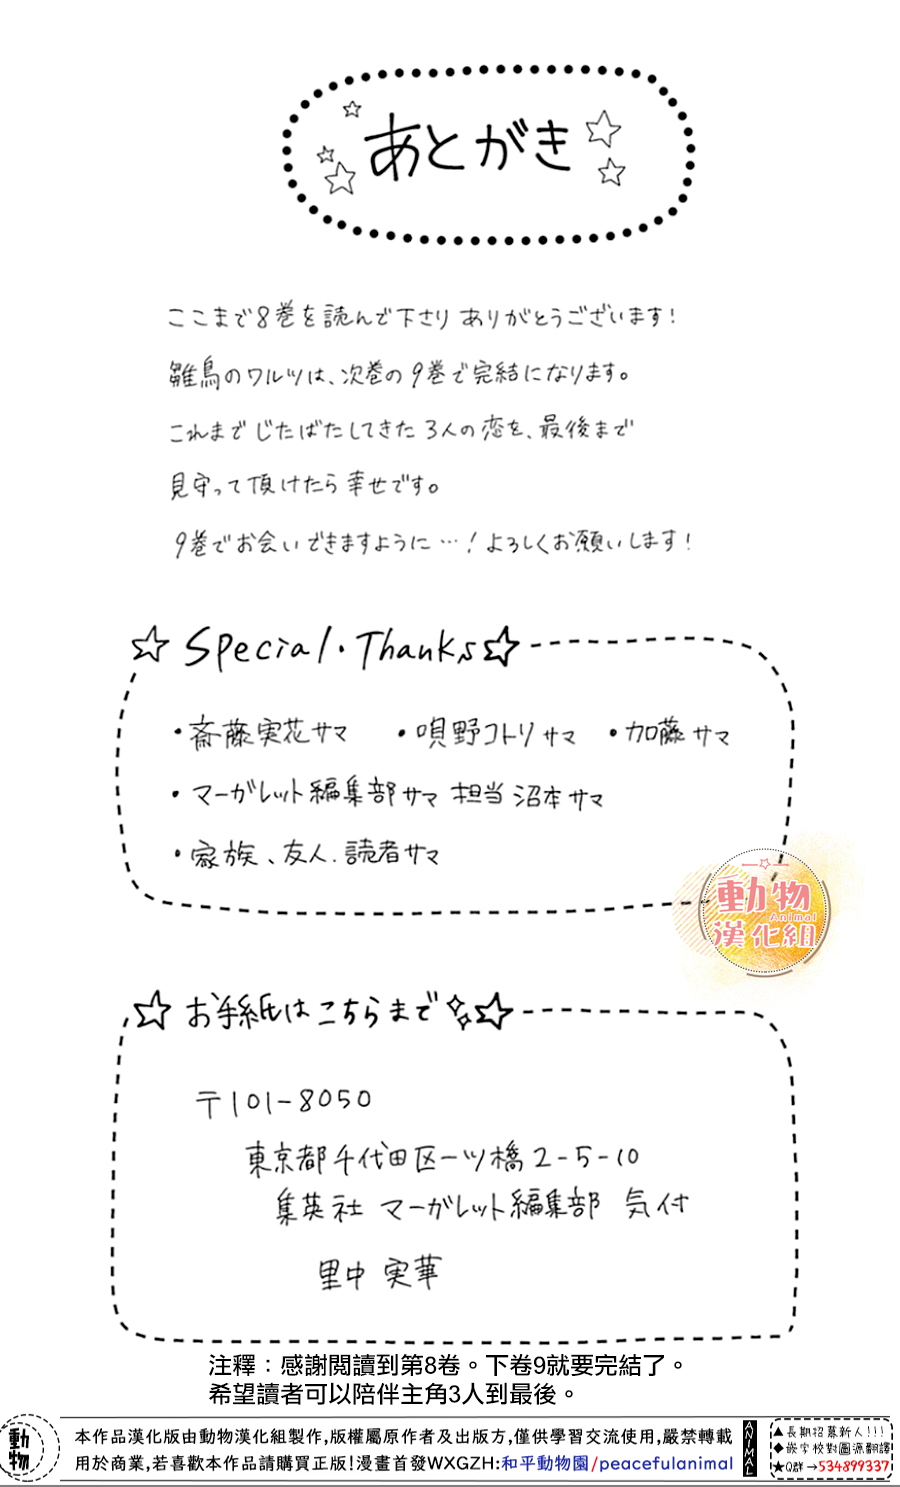 あとがき
ここまで8巻を読んで下さり ありがとうございます！
雛鳥のワルツは、次巻の9巻で完結になります。
これまで じたばたしてきた 3人の恋を、最後まで
見守って頂けたら幸せです。
9巻でお会いできますように…！よろしくお願いします！
☆Special・Thanks☆
・斎藤実花サマ ・唄野コトリサマ ・加藤サマ
・マーガレット編集部サマ 担当 沼本サマ
・家族、友人、読者サマ
動物
Animal
漢化組
☆お手紙はこちらまで☆
〒101-8050
東京都千代田区一ツ橋2-5-10
集英社 マーガレット編集部 気付
里中 実華
注釋：感謝閱讀到第8卷。下卷9就要完結了。
希望讀者可以陪伴主角3人到最後。
動物
本作品漢化版由動物漢化組製作,版權屬原作者及出版方,僅供學習交流使用,嚴禁轉載
用於商業,若喜歡本作品請購買正版!漫畫首發WXGZH:和平動物園/peacefulanimal
ANIMAL
▲長期招募新人!!!
◆嵌字校對圖源翻譯
★Q群→534899337